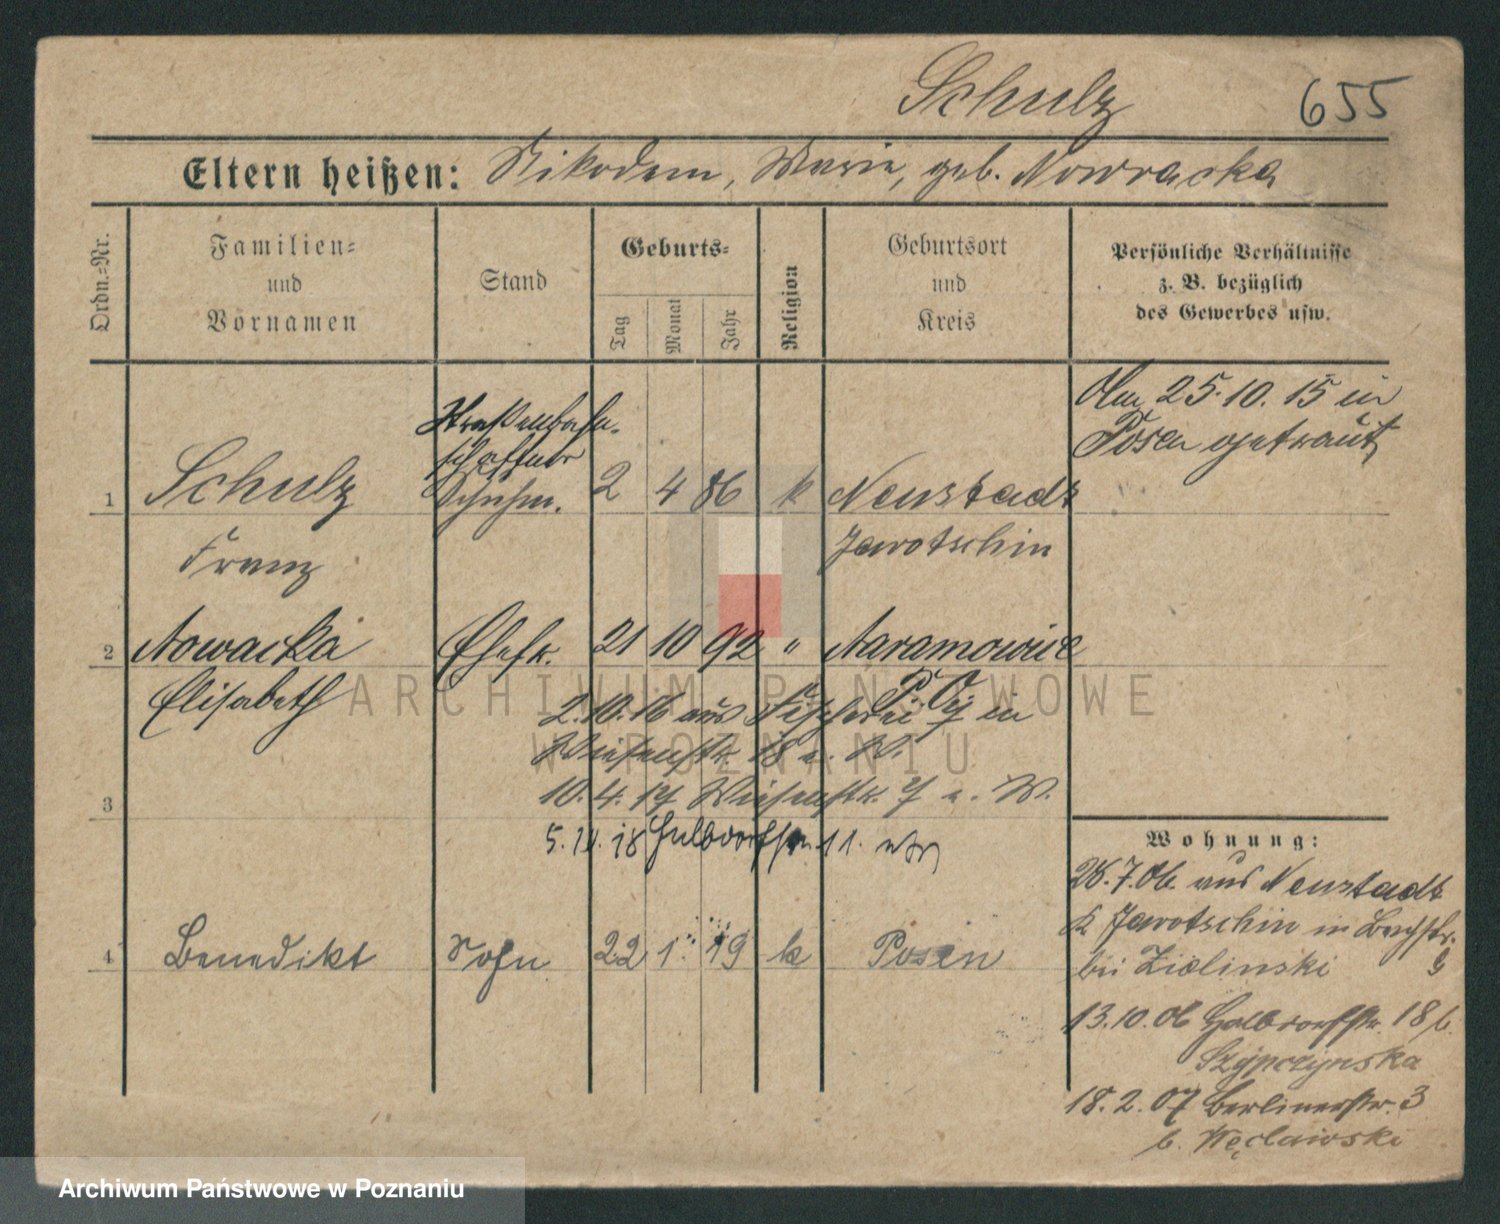 Schulz 655
Eltern heißen: Nikodem, Marie, geb. Nowracka
Ordn.-Nr.
Familien-
und
Vornamen
Stand
Geburts-
Tag
Monat
Jahr
Religion
Geburtsort
und
Kreis
Persönliche Verhältnisse
z. B. bezüglich
des Gewerbes usw.
Am 25.10.15 in
Posen getraut
Straßenbahn-
schaffner
1 Schulz 2 4 86 k Neustadt
Franz Jarotschin
2 Nowacka Ehefr. 21 10 92 " Naramowice
Elisabeth P. O.
2.10.16 aus Fischerei 7 in
Wiesenstr. 18 b. W.
10.4.17 Wiesenstr. 7 b. W.
3
5. 18 Halbdorfstr. 11.
4 Benedikt Sohn 22 1. 19 k Posen
Wohnung:
28.7.06. aus Neustadt
K Jarotschin in Bachstr.
bei Zielinski 9
13.10.06 Halbdorfstr. 18 b.
Szypczynska
18.2.07 Berlinerstr. 3
b. Węclawski
ARCHIWUM PAŃSTWOWE
W POZNANIU
Archiwum Państwowe w Poznaniu